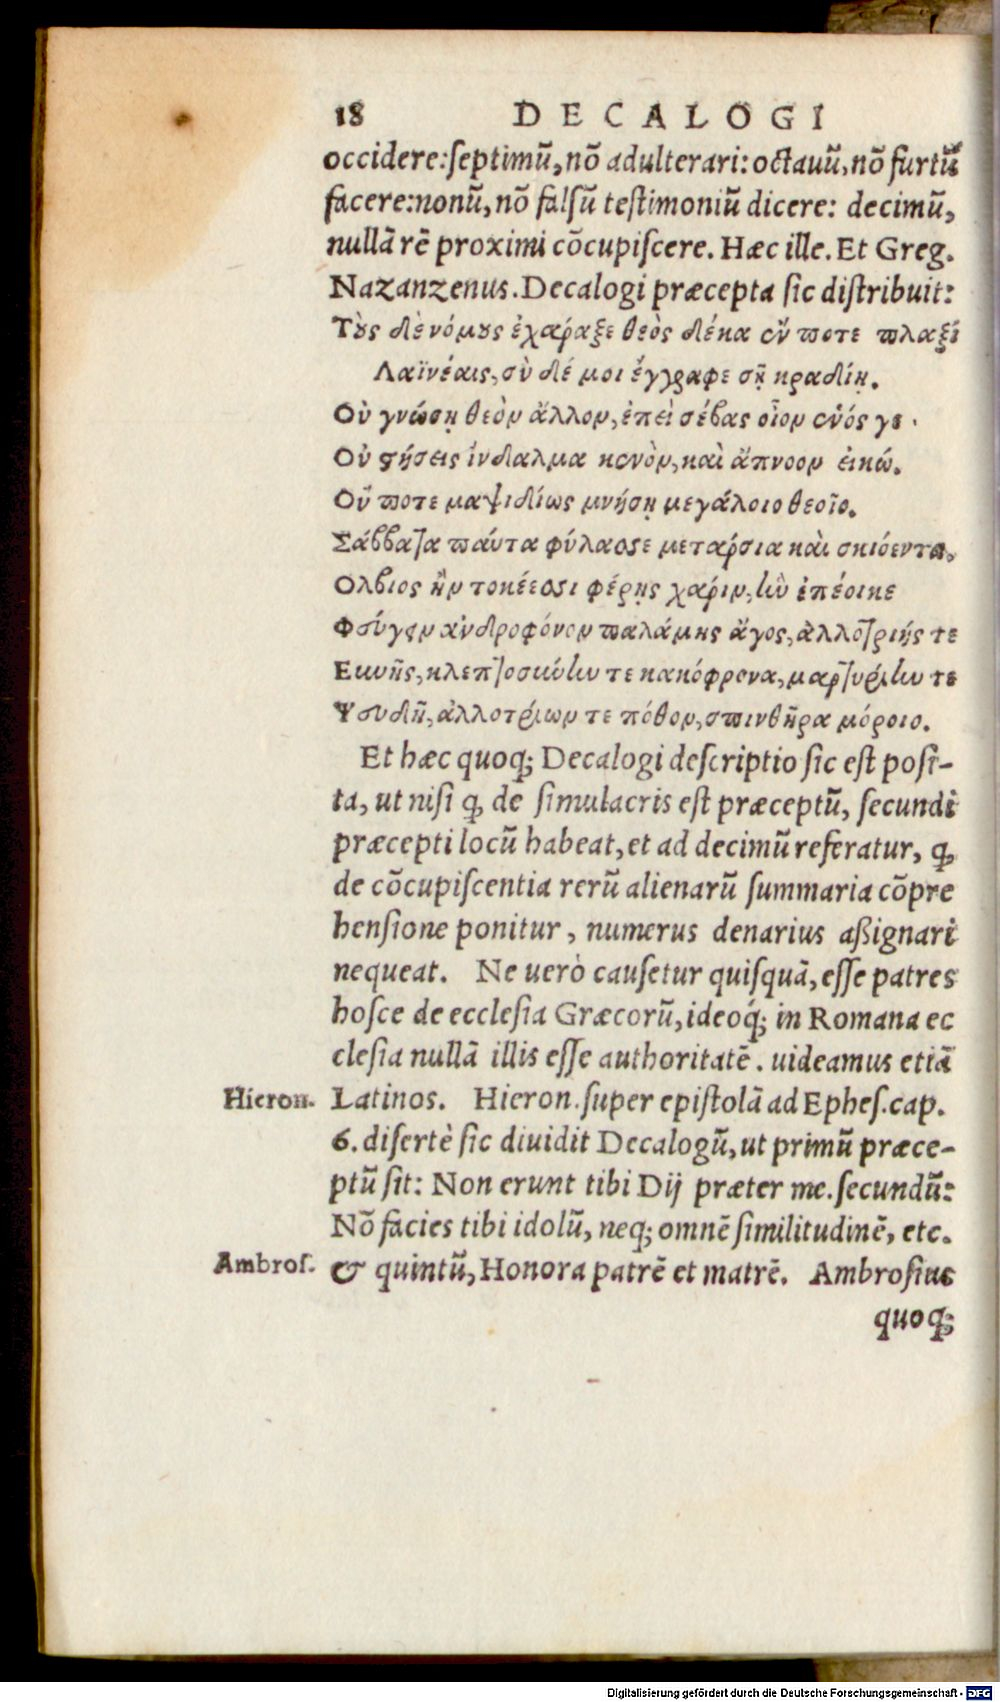 18 DECALOGI
occidere:ſeptimũ, nõ adulterari: octauũ, nõ furtũ
facere:nonũ, nõ falſũ teſtimoniũ dicere: decimũ,
nullã rẽ proximi cõcupiſcere. Hæc ille. Et Greg.
Nazanzenus. Decalogi præcepta ſic diſtribuit:
Τοὺς δὲ νόμους ἐχάραξε θεὸς δέκα ἔν ποτε πλαξὶ
Λαϊνέαις, σὺ δέ μοι ἔγγραφε σῇ κραδίῃ.
Οὐ γνώσῃ θεὸν ἄλλον, ἐπεὶ σέβας οἶον ἑνός γε.
Οὐ στήσεις ἴνδαλμα κενὸν, καὶ ἄπνοον εἰκώ.
Οὔ ποτε μαψιδίως μνήσῃ μεγάλοιο θεοῖο.
Σάββατα πάντα φύλασσε μετάρσια καὶ σκιόεντα,
Ολβιος ἢν τοκέεσσι φέρῃς χάριν, ἣν ἐπέοικε
Φεύγειν ἀνδροφόνον παλάμης ἄγος, ἀλλοτρίης τε
Ευνῆς, κλεπτοσύνην τε κακόφρονα, μαρτυρίην τε
Ψευδῆ, ἀλλοτρίων τε πόθον, σπινθῆρα μόροιο.
Et hæc quoq; Decalogi deſcriptio ſic est poſi-
ta, ut niſi ꝙ de ſimulacris eſt præceptũ, ſecundi
præcepti locũ habeat, et ad decimũ referatur, ꝙ
de cõcupiſcentia rerũ alienarũ ſummaria cõpre
henſione ponitur, numerus denarius aßignari
nequeat. Ne uerò cauſetur quiſquã, eſſe patres
hoſce de eccleſia Græcorũ, ideoq́; in Romana ec
cleſia nullã illis eſſe authoritatẽ. uideamus etiã
Hieron. Latinos. Hieron. ſuper epiſtolã ad Epheſ. cap.
6. diſertè ſic diuidit Decalogũ, ut primũ præce-
ptũ ſit: Non erunt tibi Dij præter me. ſecundũ:
Nõ facies tibi idolũ, neq; omnẽ ſimilitudinẽ, etc.
Ambroſ. & quintũ, Honora patrẽ et matrẽ. Ambroſius
quoq;
Digitalisierung gefördert durch die Deutsche Forschungsgemeinschaft - DFG